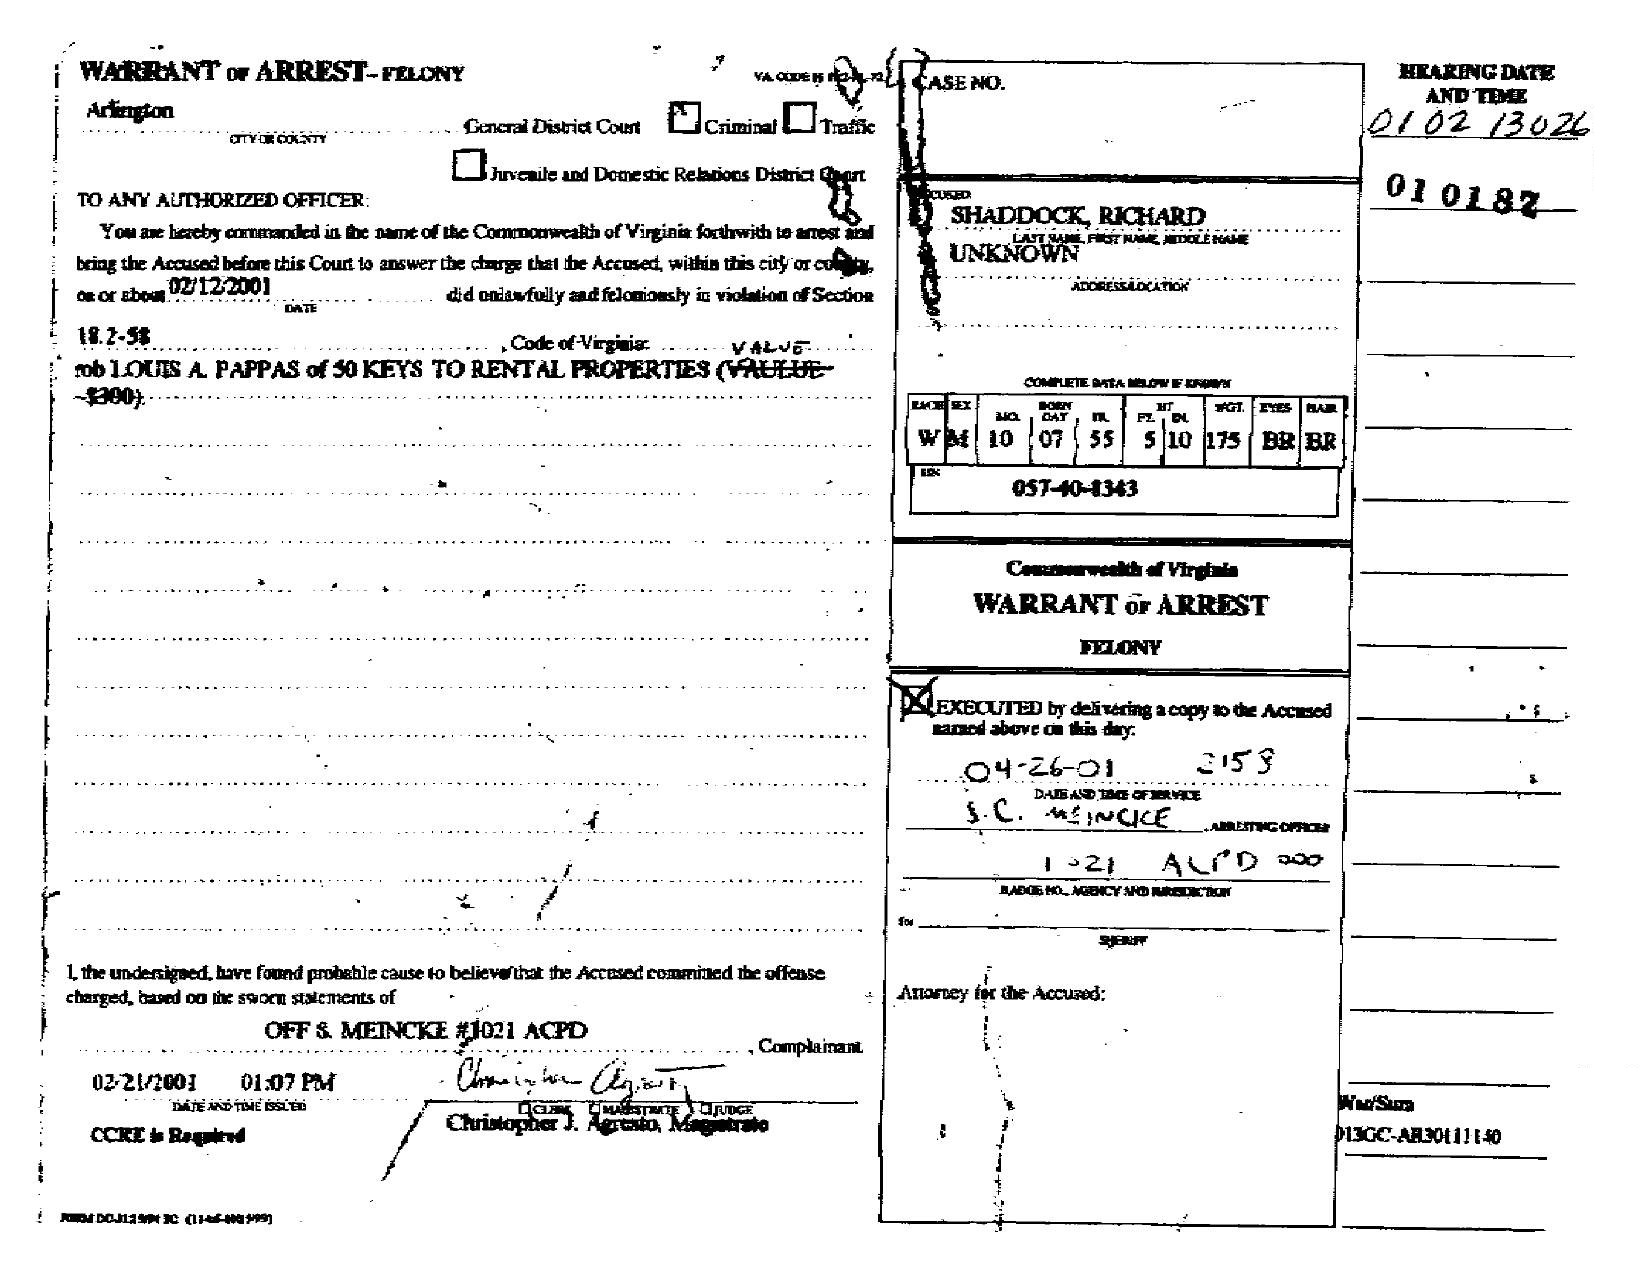 WARRANT OF ARREST– FELONY
VA. CODE §
Arlington
CITY OR COUNTY
General District Court Criminal Traffic
Juvenile and Domestic Relations District Court
TO ANY AUTHORIZED OFFICER:
You are hereby commanded in the name of the Commonwealth of Virginia forthwith to arrest and
bring the Accused before this Court to answer the charge that the Accused, within this city or county,
on or about 02/12/2001 did unlawfully and feloniously in violation of Section
DATE
18.2-58 , Code of Virginia:
VALUE
rob LOUIS A. PAPPAS of 50 KEYS TO RENTAL PROPERTIES (VAULUE
~$300).
I, the undersigned, have found probable cause to believe that the Accused committed the offense
charged, based on the sworn statements of
OFF S. MEINCKE #1021 ACPD
, Complainant.
02/21/2001 01:07 PM
DATE AND TIME ISSUED
CLERK MAGISTRATE JUDGE
Christopher J. Agresto, Magistrate
CCRE is Required
CASE NO.
ACCUSED
SHADDOCK, RICHARD
LAST NAME, FIRST NAME, MIDDLE NAME
UNKNOWN
ADDRESS/LOCATION
COMPLETE DATA BELOW IF KNOWN
RACE SEX BORN HT. WGT. EYES HAIR
MO. DAY YR. FT. IN.
W M 10 07 55 5 10 175 BR BR
SSN
057-40-8343
Commonwealth of Virginia
WARRANT OF ARREST
FELONY
EXECUTED by delivering a copy to the Accused
named above on this day:
04-26-01 2158
DATE AND TIME OF SERVICE
S.C. MEINCKE , ARRESTING OFFICER
1021 ACPD 000
BADGE NO., AGENCY AND JURISDICTION
for
SHERIFF
Attorney for the Accused:
HEARING DATE
AND TIME
01 02 13026
01 0187
War/Sum
013GC-AR30111140